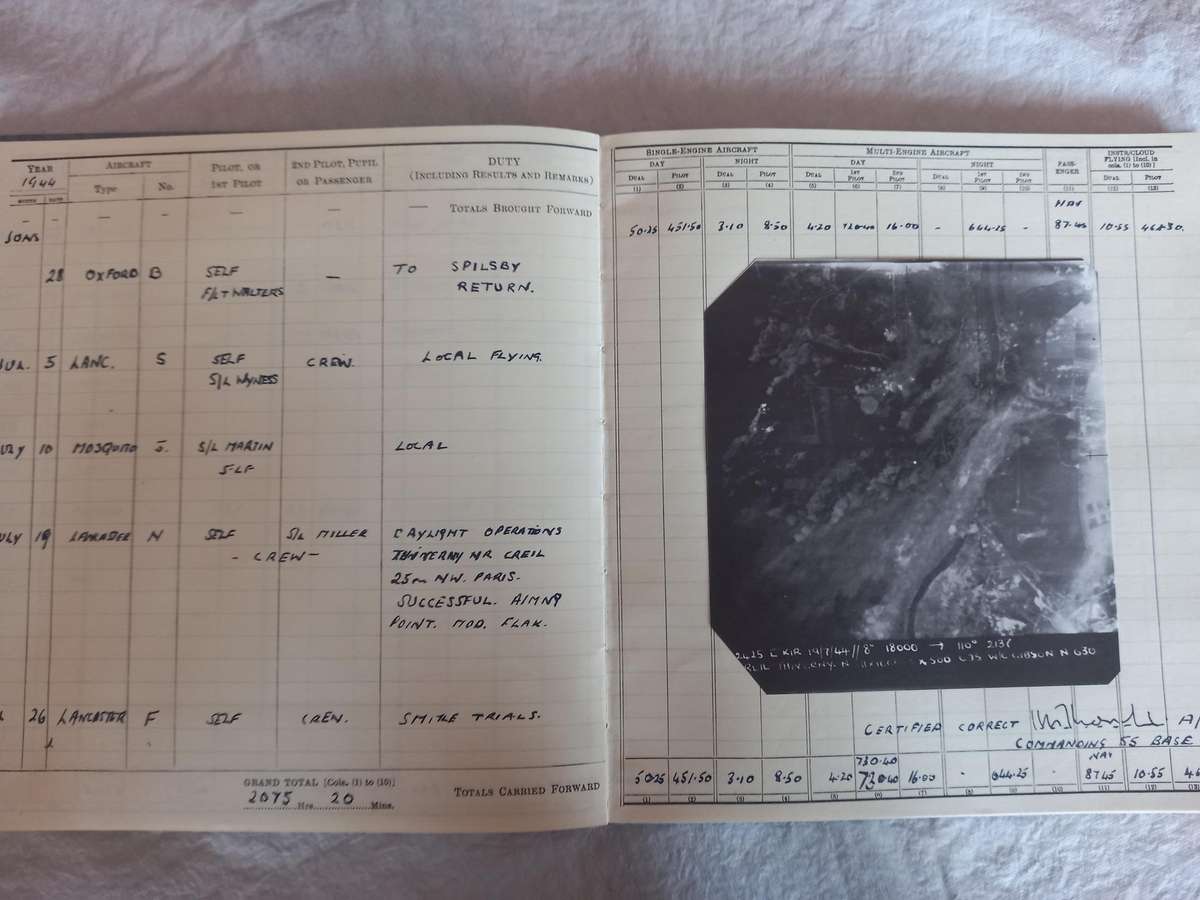 YEAR
1944
AIRCRAFT
PILOT, OR
1ST PILOT
2ND PILOT, PUPIL
OR PASSENGER
DUTY
(INCLUDING RESULTS AND REMARKS)
MONTH DATE
Type
No.
— — — — — — — TOTALS BROUGHT FORWARD
SONS
28 OXFORD B SELF — TO SPILSBY
F/LT WALTERS RETURN.
JUL. 5 LANC. S SELF CREW. LOCAL FLYING.
S/L WYNESS
ULY 10 MOSQUITO S/L MARTIN LOCAL
SELF
ULY 19 N SELF S/L MILLER DAYLIGHT OPERATIONS
- CREW - THIVERNY NR CREIL
25m NW. PARIS.
SUCCESSFUL. AIMNG
POINT. MOD. FLAK.
26 LANCASTER F SELF CREW. TRIALS.
GRAND TOTAL [Cols. (1) to (10)]
2075 Hrs. 20 Mins.
TOTALS CARRIED FORWARD
SINGLE-ENGINE AIRCRAFT
MULTI-ENGINE AIRCRAFT
PASS-
ENGER
INSTR/CLOUD
FLYING [Incl. in
cols. (1) to (10)]
DAY NIGHT DAY NIGHT
DUAL PILOT DUAL PILOT DUAL 1ST PILOT 2ND PILOT DUAL 1ST PILOT 2ND PILOT DUAL PILOT
(1) (2) (3) (4) (5) (6) (7) (8) (9) (10) (11) (12) (13)
NAV
50.25 451.50 3.10 8.50 4.20 730.40 16.00 - 644.25 - 87.45 10.55 468.30.
2425 E KIR 19/7/44 // 8" 18000 → 110°
THIVERNY. N GIBSON N 630
CERTIFIED CORRECT
COMMANDING 55 BASE
730.40 NAV
50.25 451.50 3.10 8.50 4.20 730.40 16.00 - 644.25 - 87.45 10.55 46
(1) (2) (3) (4) (5) (6) (7) (8) (9) (10) (11) (12) (13)